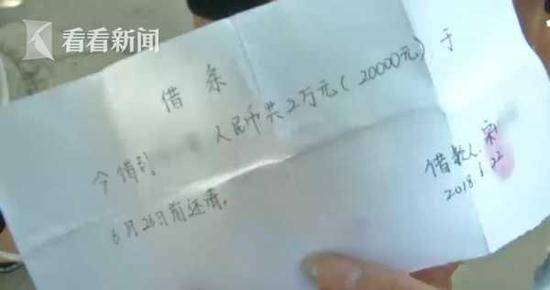 看看新闻
借条
今借到 人民币共2万元(20000元)于
6月26日前还清。
借款人:宋
2018.6.22